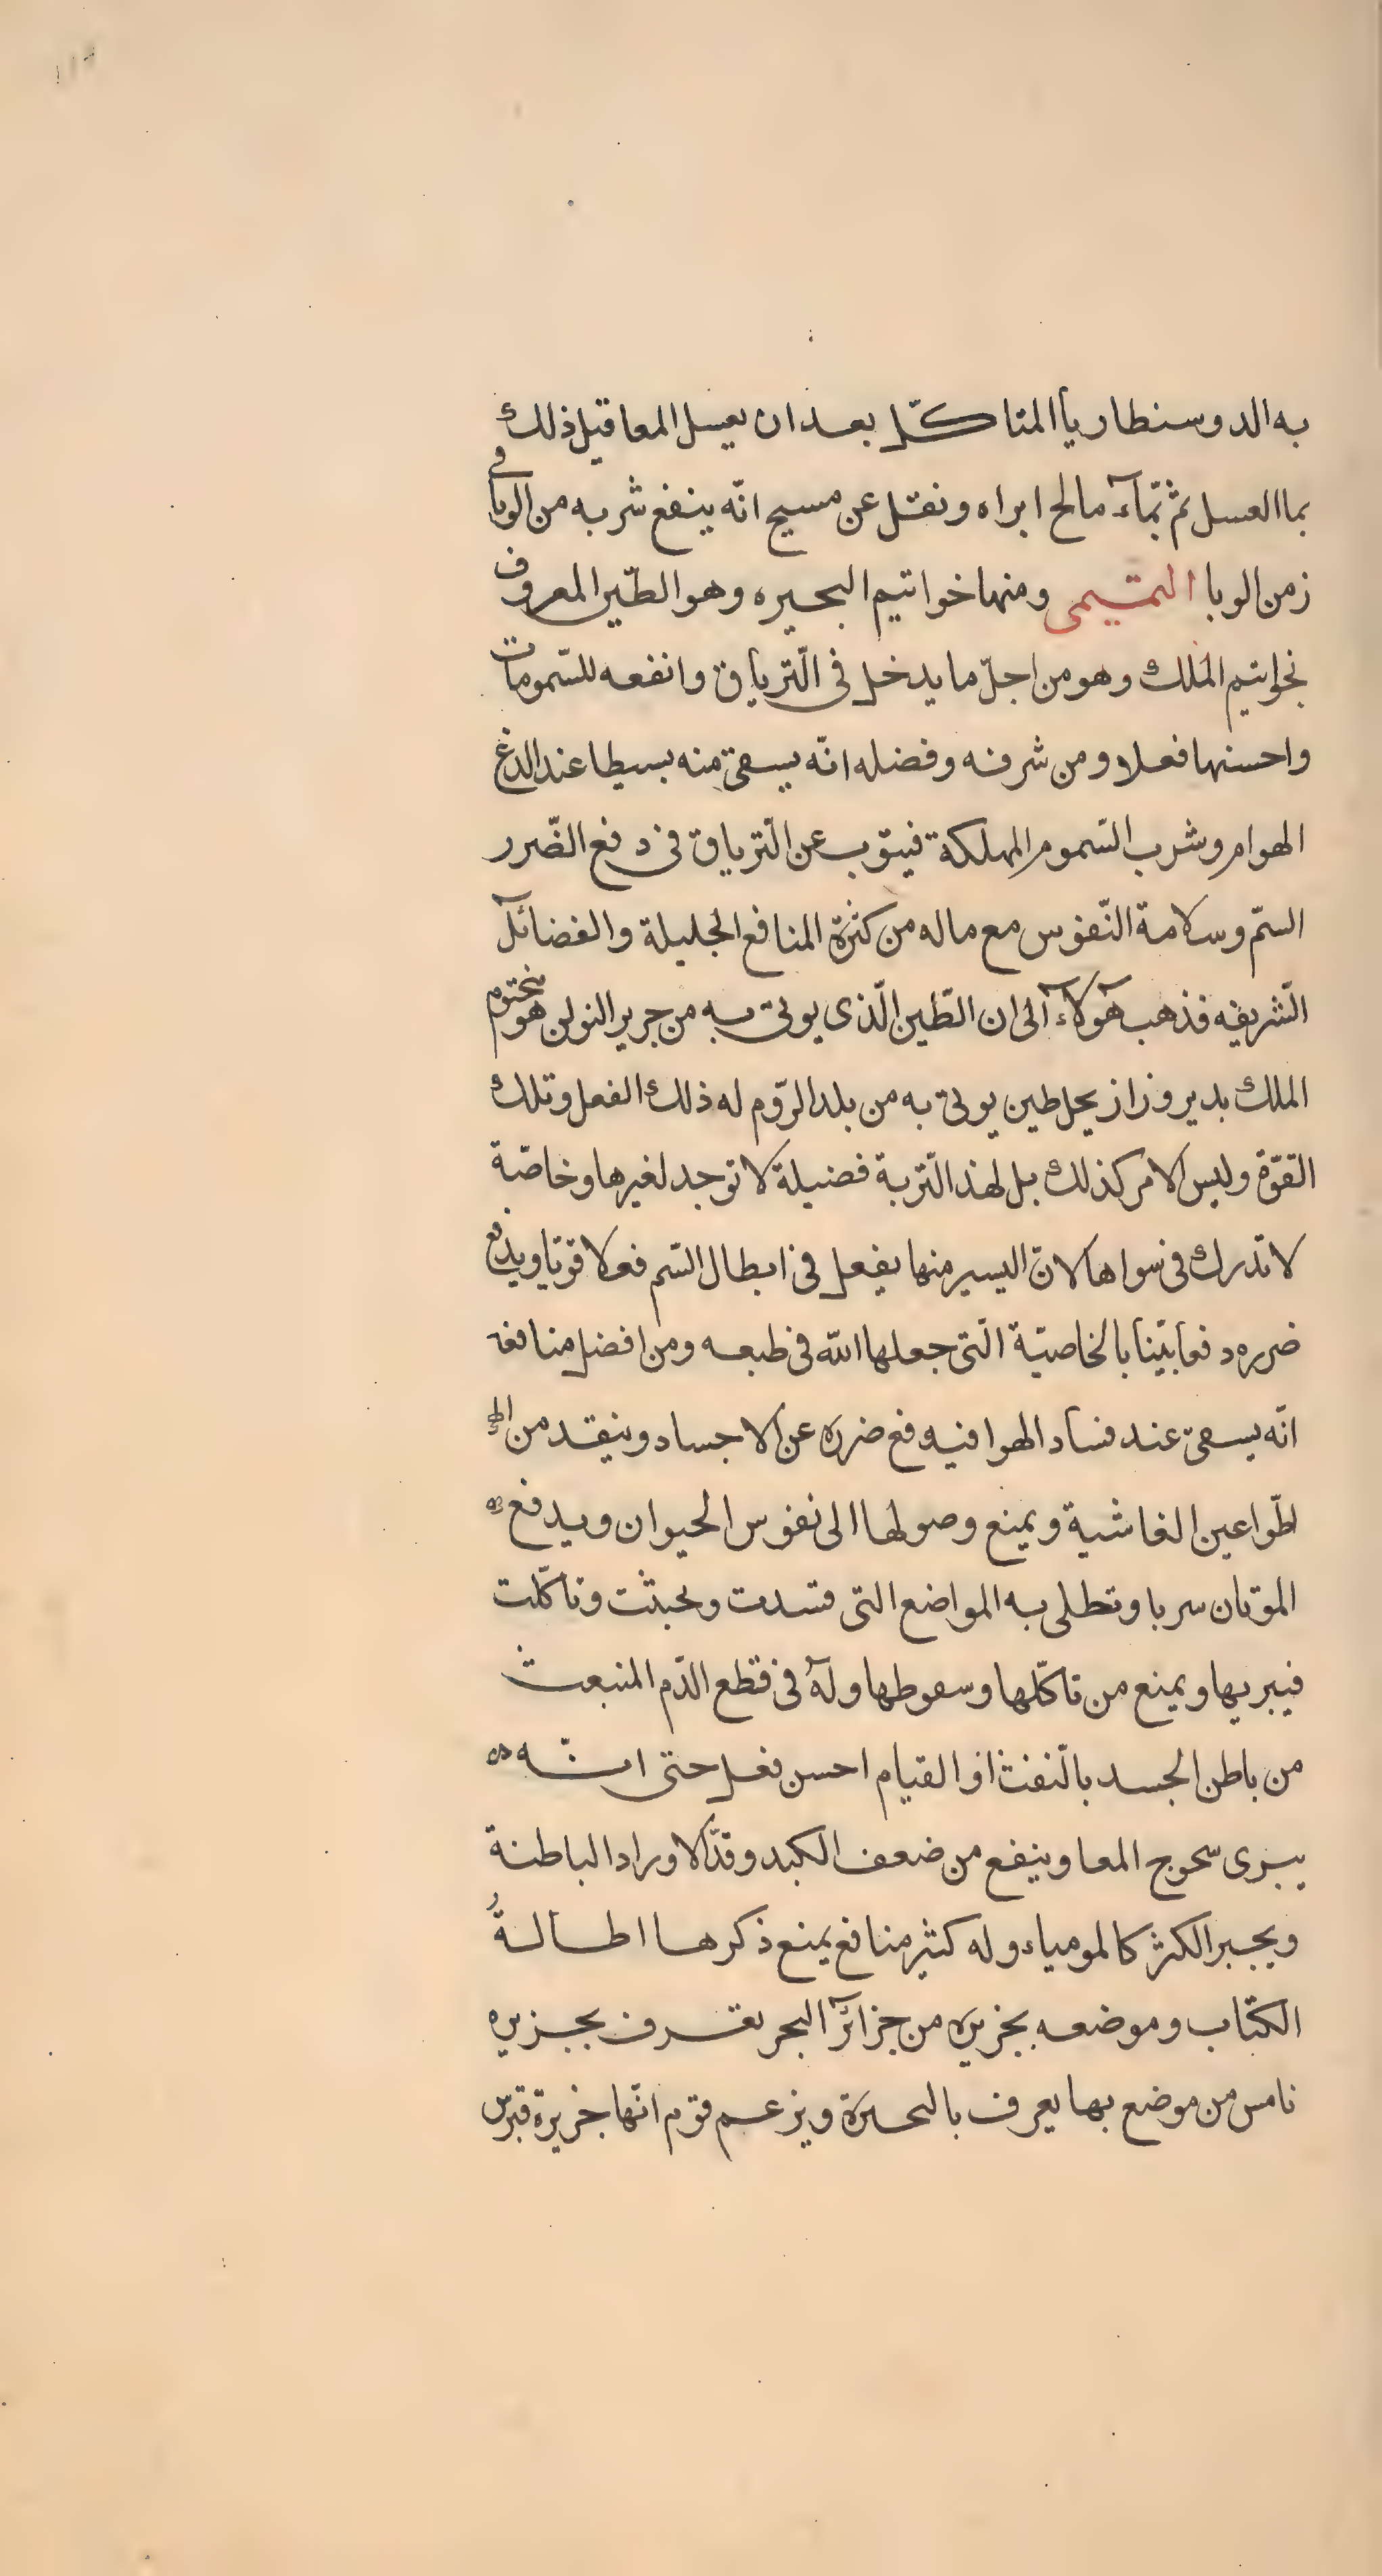 به الدوسنطاريا المتاكّل بعد ان يعسل المعا قبل ذلك
بما العسل ثم بماء مالح ابراه ونقل عن مسيح انّه ينفع شربه من الوبا في
زمن الوبا التميمى ومنها خواتيم البحيره وهو الطّين المعروف
بخواتيم الملك وهو من اجلّ ما يدخل فى التّرياق وانفعه للسّمومات
واحسنها فعلا ومن شرفه وفضله انّه يسقى منه بسيطا عند الدغ
الهوام وشرب السّموم المهلكة فينوب عن التّرياق فى دفع الضّرر
السّم وسلامة النّفوس مع ماله من كثرة المنافع الجليلة والفضائل
الشّريفه فذهب هولاء الى ان الطّين الّذى يوتى به من جرير النولن هو مختوم
الملك بدير وزاز يحل طين يوتى به من بلد الرّوم له ذلك الفعل وتلك
القوّة وليس الامر كذلك بل لهذ التّربة فضيلة لا توجد لغيرها وخاصّة
لا تدرك فى سواها لانّ اليسير منها يفعل فى ابطال السّم فعلا قويّا ويدفع
ضرره دفعا بيّنا بالخاصيّة الّتى جعلها الله فى طبعه ومن افضل منافعه
انّه يسقى عند فساد الهوا فيدفع ضرره عن الاجساد وينقد من
الطّواعين الغاشية ويمنع وصولها الى نفوس الحيوان ويدفع
الموتان سربا وتطلى به المواضع التى فسدت وخبثت وتاكّلت
فيبريها ويمنع من تاكّلها وسعوطها وله فى قطع الدّم المنبعث
من باطن الجسد بالنّفث او القيام احسن فعل حتى انّه
يبرى سحوج المعا وينفع من ضعف الكبد وقدّ الاوراد الباطنة
ويجبر الكثر كالمومياء وله كثير منافع يمنع ذكرها اطالةُ
الكتاب وموضعه بجزيره من جزائر البحر تعرف بجزيره
نامس من موضع بها يعرف بالبحيرة ويزعم قوم انّها جزيرة قبرس